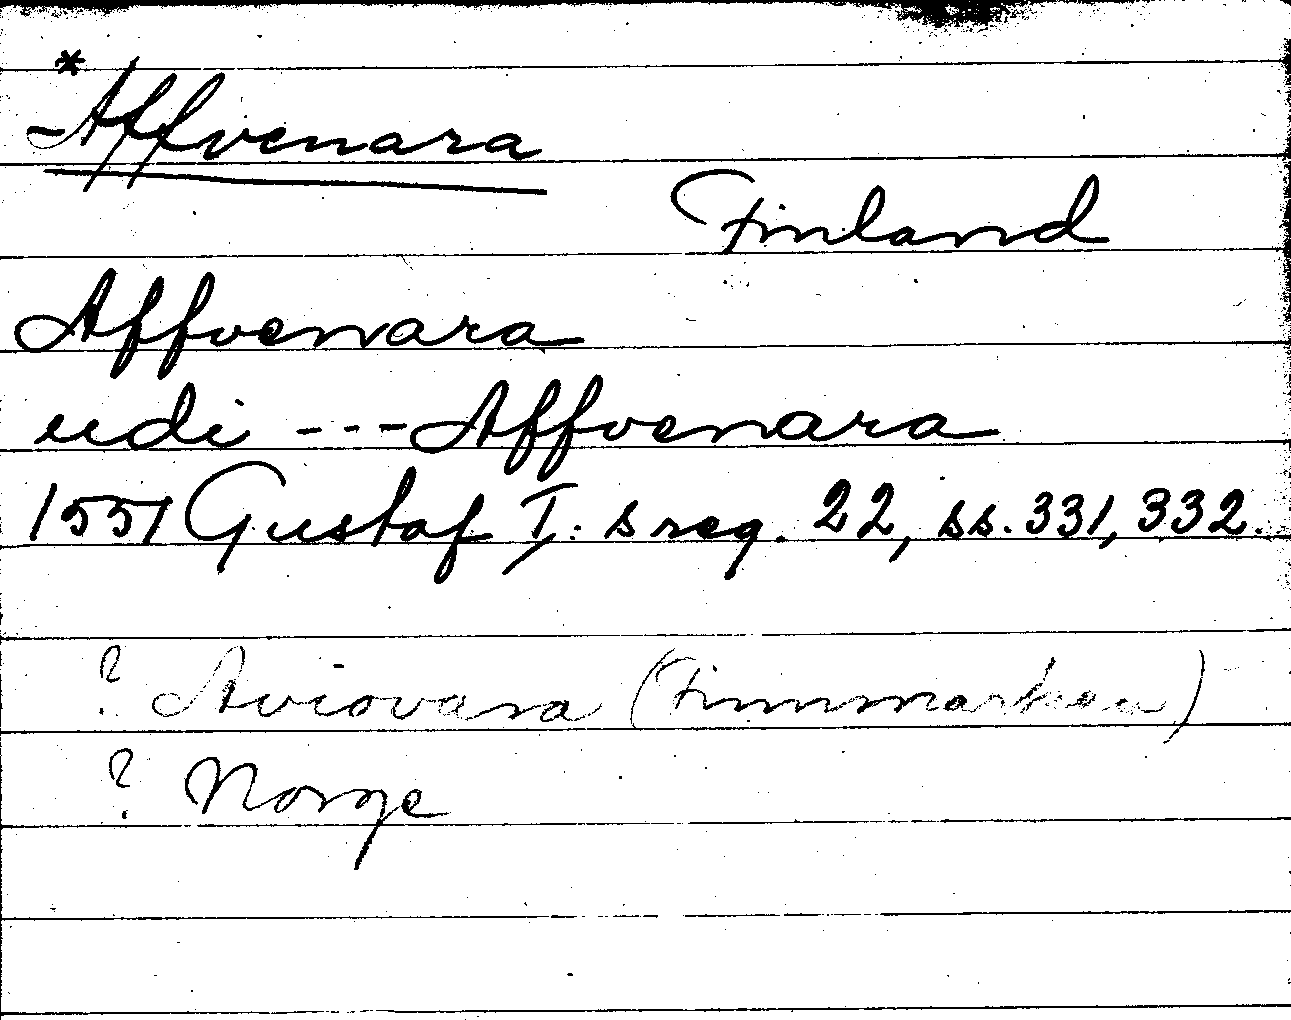 * Affvenara
Finland
Affvenara
udi --- Affvenara
1551 Gustaf I:s reg. 22, ss. 331, 332.
? Aviovara (Finnmarken)
? Norge